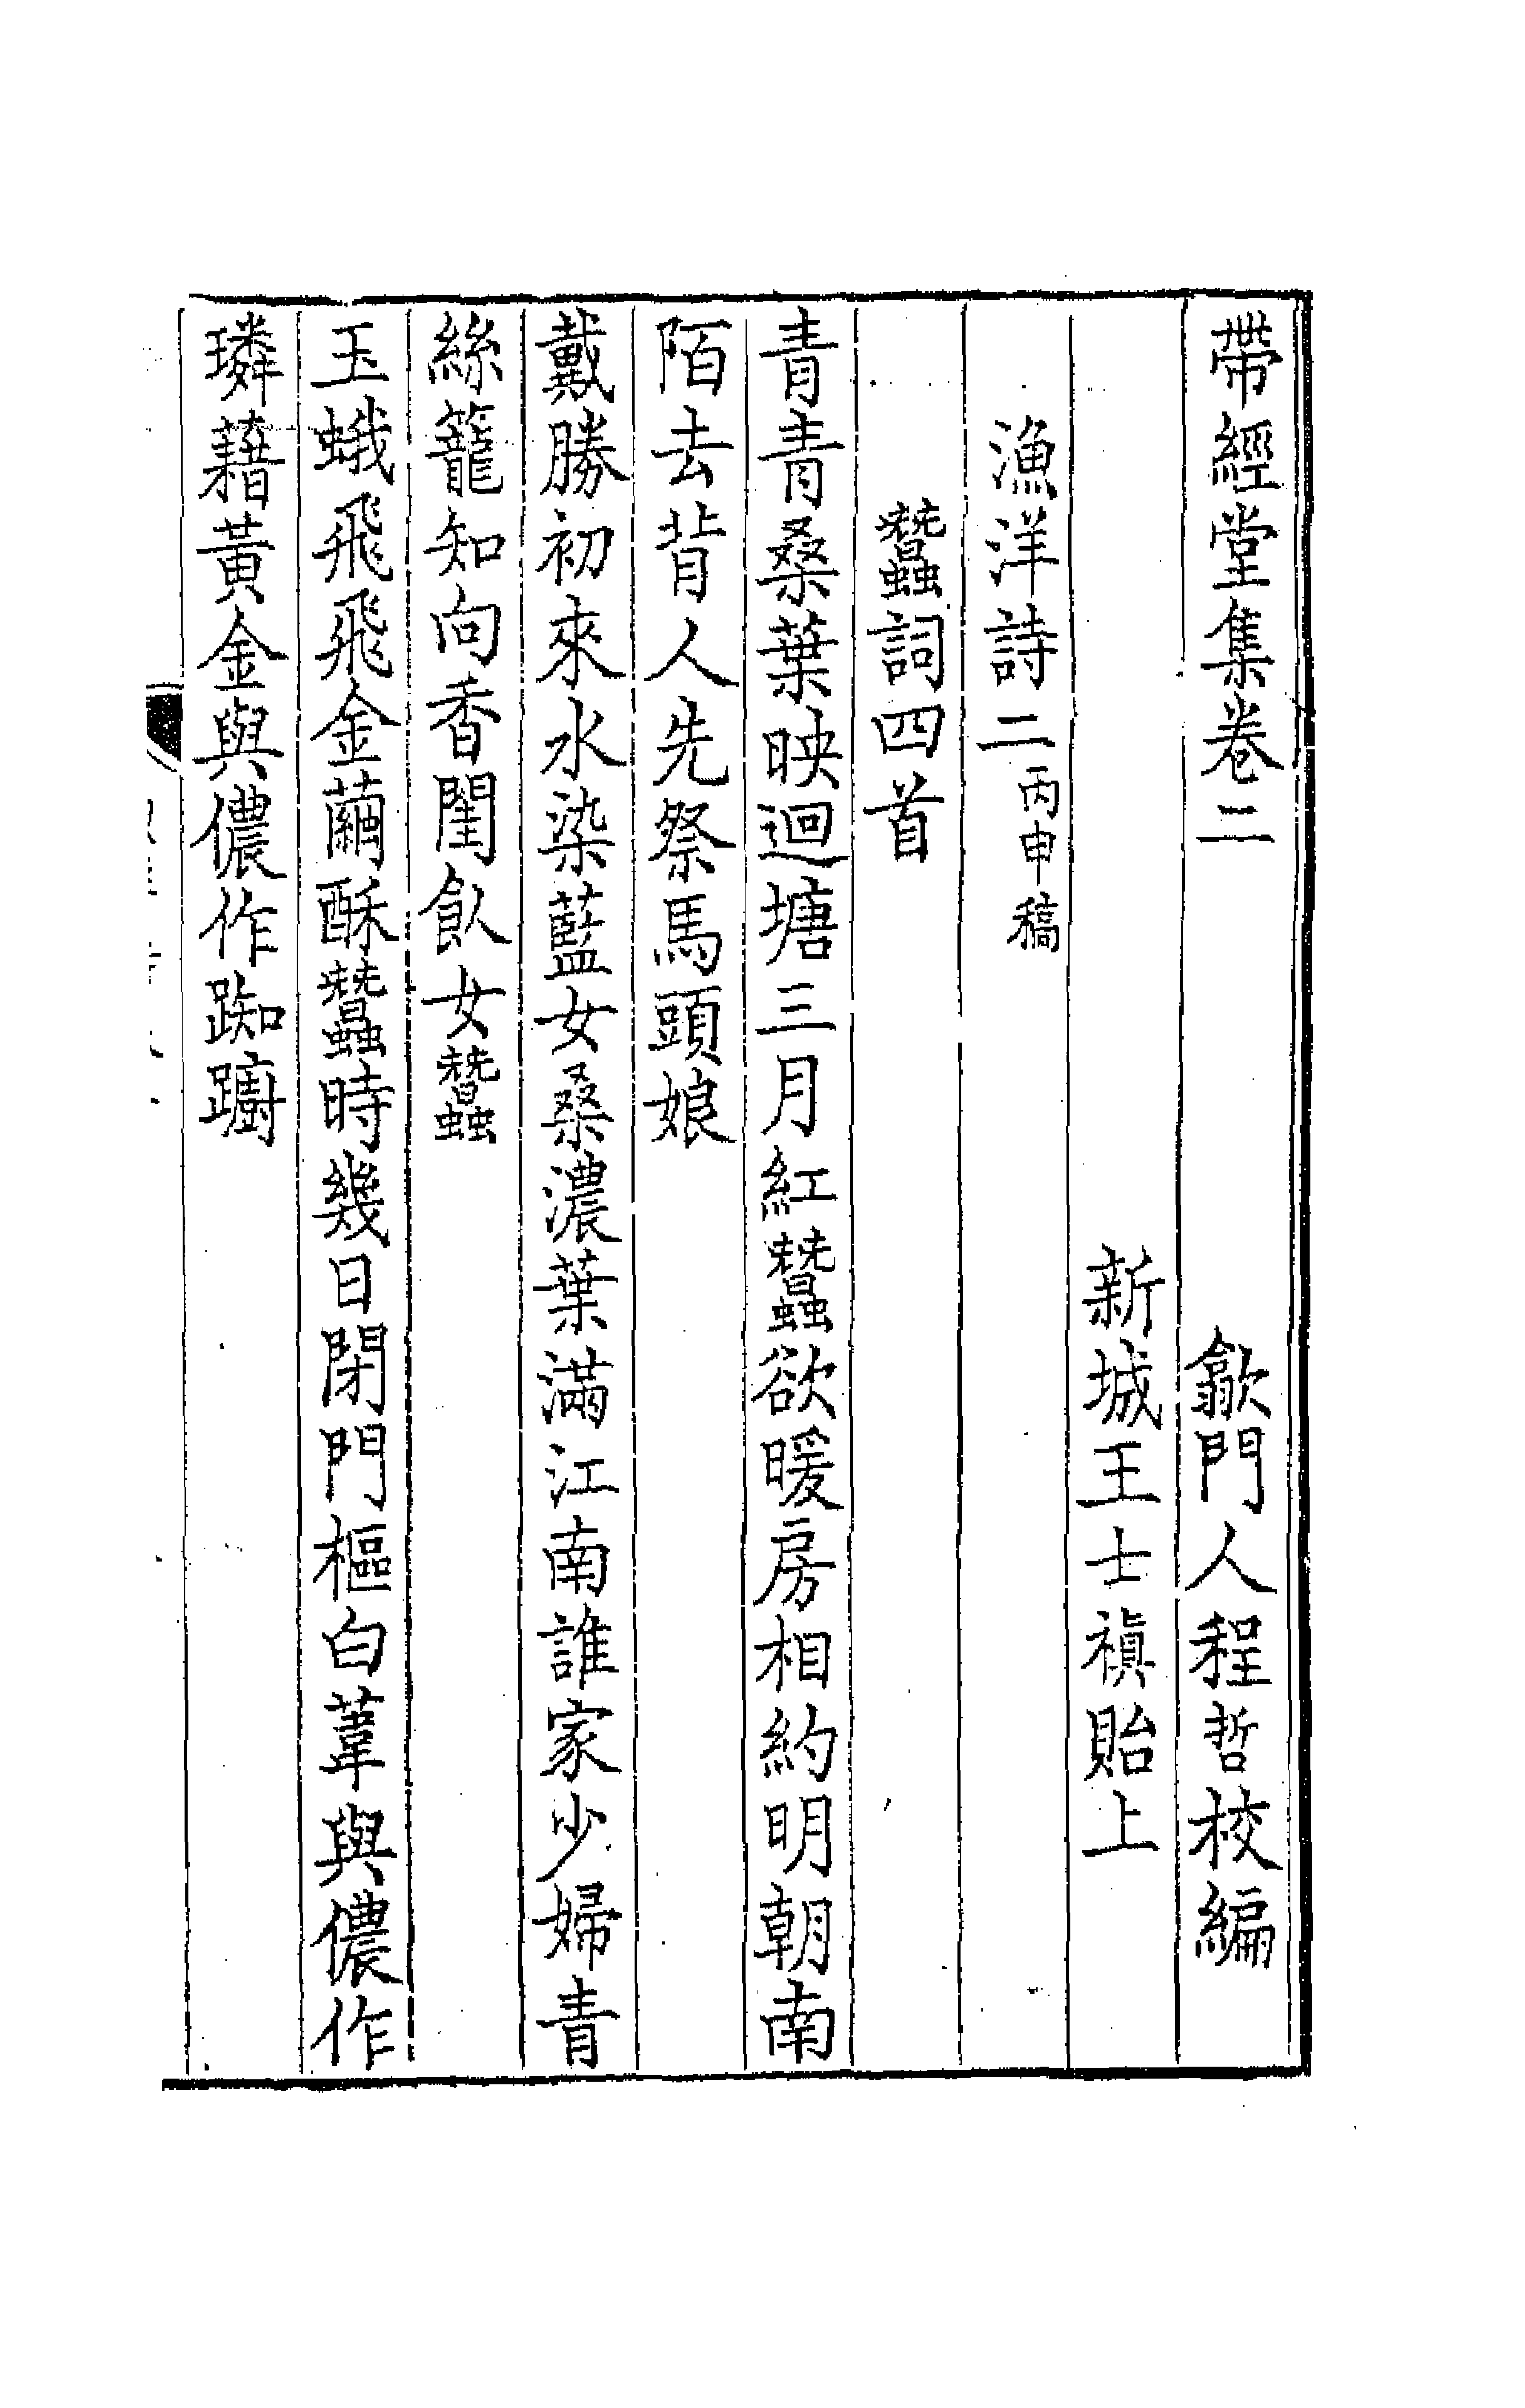 帶經堂集卷二 歙門人程哲校編
新城王士禛貽上
漁洋詩二丙申稿
蠶詞四首
青青桑葉映迴塘三月紅蠶欲暖房相約明朝南
陌去背人先祭馬頭娘
戴勝初來水染藍女桑濃葉滿江南誰家少婦青
絲籠知向香閨飤女蠶
玉蛾飛飛金繭酥蠶時幾日閉門樞白葦與儂作
璘藉黃金與儂作踟躕